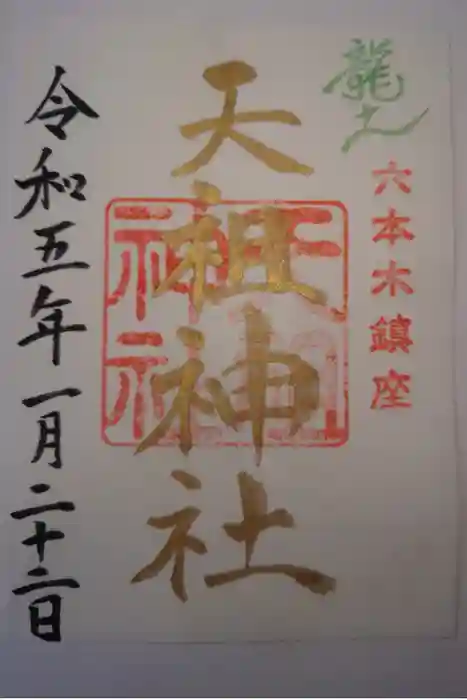 龍土
六本木鎮座
天祖神社
天祖
神社
令和五年一月二十二日